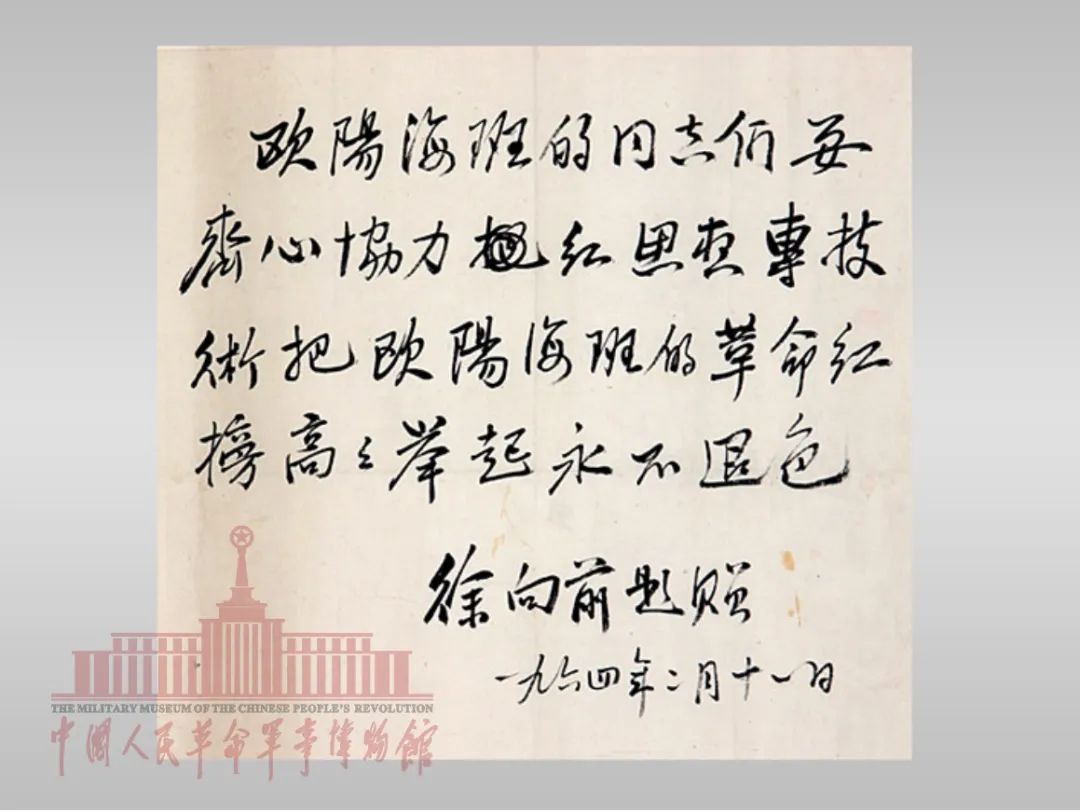 欧陽海班的同志们要
齊心協力红思想專技
術把欧陽海班的革命红
榜高々举起永不退色
徐向前题赠
一九六四年二月十一日
THE MILITARY MUSEUM OF THE CHINESE PEOPLE'S REVOLUTION
中国人民革命军事博物館